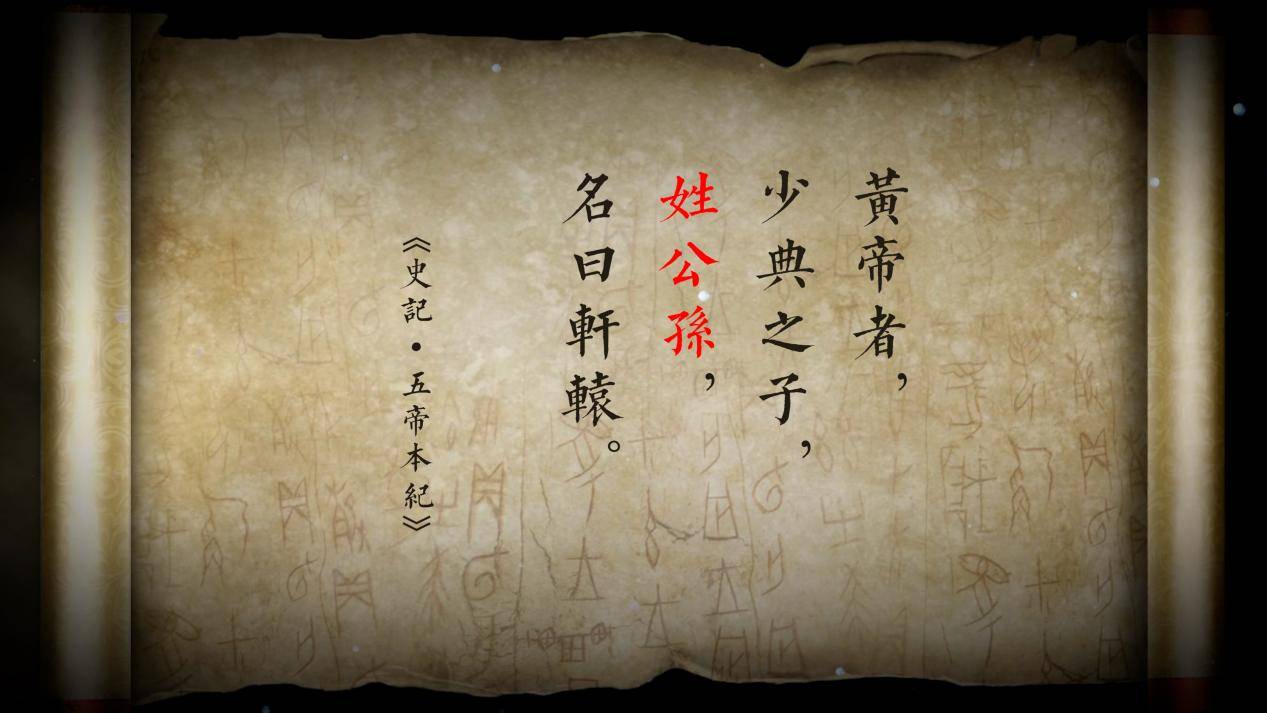 黃帝者，
少典之子，
姓公孫，
名曰軒轅。
《史記•五帝本紀》